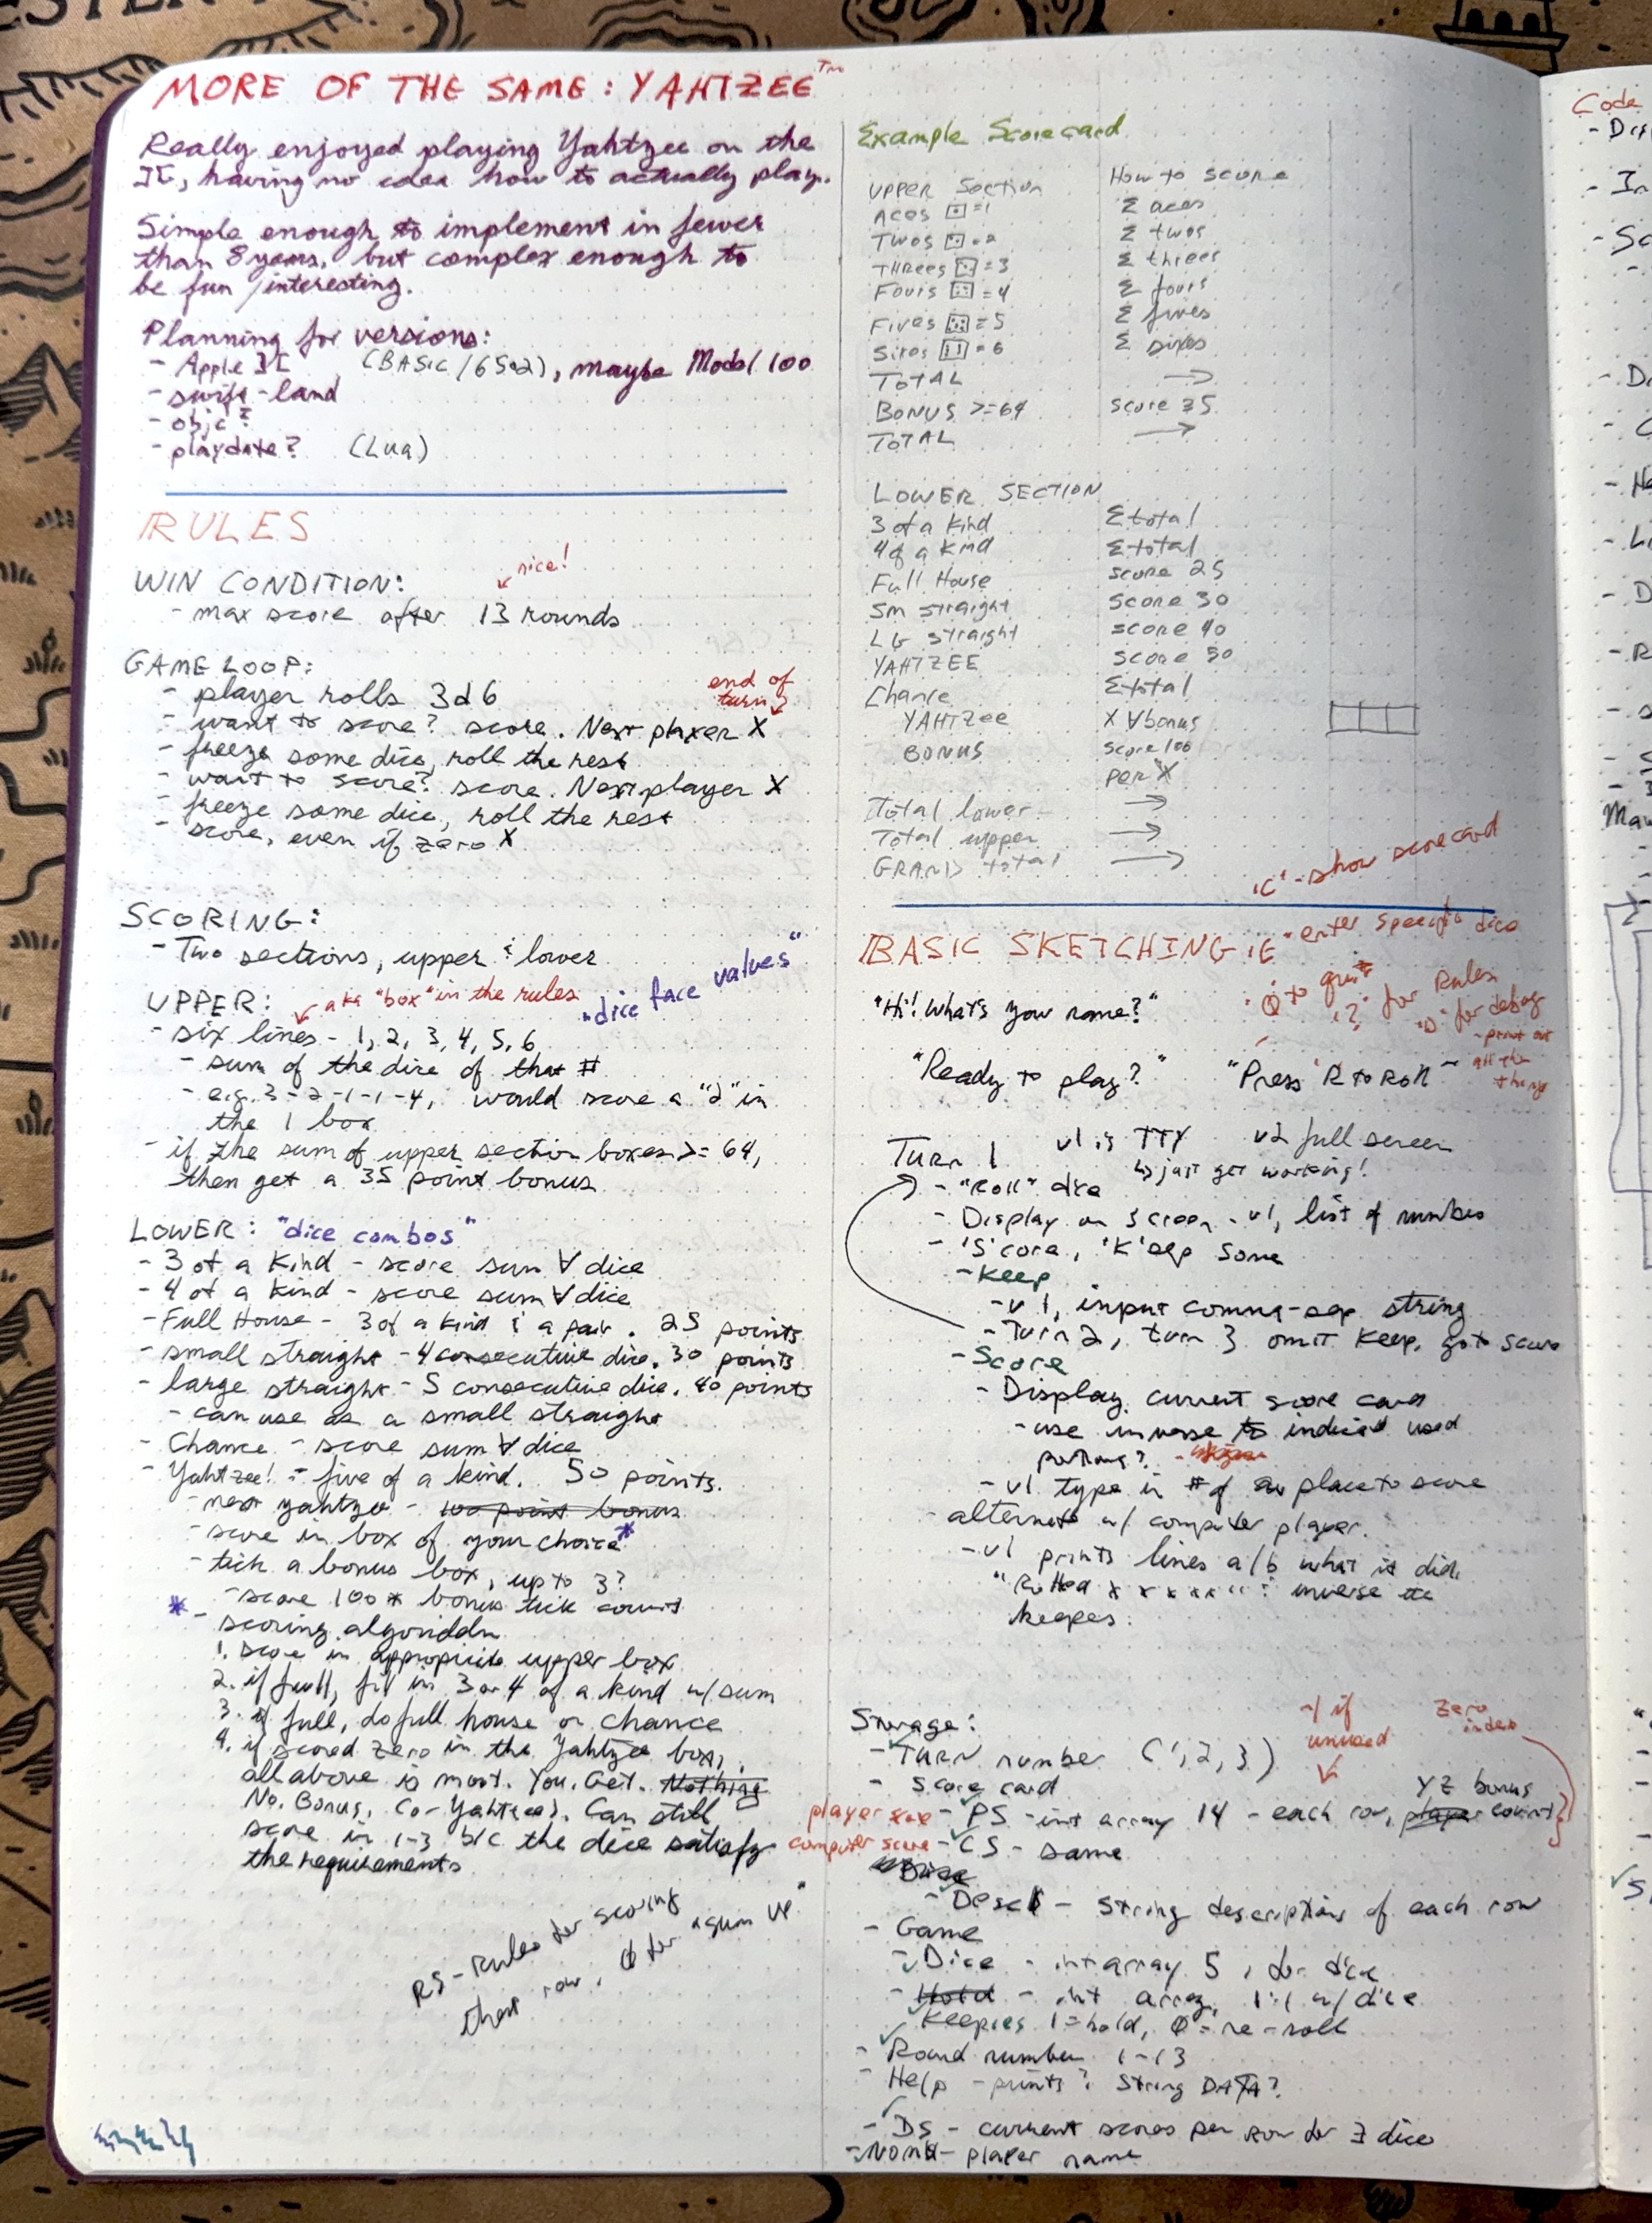 MORE OF THE SAME: YAHTZEE™
Really enjoyed playing Yahtzee on the
IIc, having no idea how to actually play.
Simple enough to implement in fewer
than 8 years, but complex enough to
be fun/interesting.
Planning for versions:
- Apple II (BASIC/6502), maybe Model 100
- swift-land
- objc?
- playdate? (Lua)
RULES
WIN CONDITION:
nice!
- max score after 13 rounds
GAME LOOP:
- player rolls 3d6
end of
turn
- want to score? score. Next player X
- freeze some dice, roll the rest
- want to score? score. Next player X
- freeze some dice, roll the rest
- score, even if zero X
SCORING:
- Two sections, upper & lower
UPPER: aka "box" in the rules "dice face values"
- six lines - 1, 2, 3, 4, 5, 6
- sum of the dice of that #
- e.g. 3-2-1-1-4, would score a "2" in
the 1 box
- if the sum of upper section boxes >= 64,
then get a 35 point bonus
LOWER: "dice combos"
- 3 of a kind - score sum ∀ dice
- 4 of a kind - score sum ∀ dice
- Full House - 3 of a kind & a pair. 25 points
- small straight - 4 consecutive dice. 30 points
- large straight - 5 consecutive dice. 40 points
- can use as a small straight
- Chance - score sum ∀ dice
- Yahtzee! - five of a kind. 50 points.
- next yahtzee - 100 point bonus
- score in box of your choice*
- tick a bonus box, up to 3?
- score 100 * bonus tick count
* - scoring algoriddm
1. score in appropriate upper box
2. if full, fill in 3 or 4 of a kind w/ sum
3. if full, do full house or chance
4. if scored zero in the Yahtzee box,
all above is moot. You. Get. Nothing
No. Bonus. Co-Yahtzee). Can still
score in 1-3 b/c the dice satisfy
the requirements
RS - Rules for scoring
that row. Ø for "sum up"
Example Scorecard
UPPER Section How to score
Aces ⚀=1 Σ aces
Twos ⚁=2 Σ twos
THRees ⚂=3 Σ threes
Fours ⚃=4 Σ fours
Fives ⚄=5 Σ fives
Sixes ⚅=6 Σ sixes
TOTAL →
BONUS >=64 score 35
TOTAL →
LOWER SECTION
3 of a kind Σ total
4 of a kind Σ total
Full House score 25
Sm straight score 30
LG straight score 40
YAHTZEE score 50
Chance Σ total
YAHTZee X ∀ bonus
BONUS score 100
per X
Total lower →
Total upper →
GRAND total →
'C' - show scorecard
BASIC SKETCHING 'E' enter specific dice
'Q' to quit
'?' for Rules
"D" for debug
- print out
all the
things
"Hi! What's your name?"
"Ready to play?" "Press R to Roll"
Turn 1 v1 is TTY v2 full screen
↳ just get working!
- "Roll" dice
- Display on screen - v1, list of numbers
- 'S'core, 'K'eep some
- Keep
- v1, input comma-sep string
- Turn 2, turn 3 omit keep, goto score
- Score
- Display current score card
- use inverse to indicate used
portions?
- v1 type in # of place to score
- alternate w/ computer player.
- v1 prints lines a/b what it did.
"Rolled x x x x x" : inverse the
keepers.
Storage:
- TURN number (1,2,3)
-1 if
unused
Zero
index
- score card
player score - PS - int array 14 - each row, YZ bonus player count
computer score - CS - same
Dice
- Desc$ - string descriptions of each row
- Game
- Dice - int array 5, for dice
- Hold - int array, 1:1 w/ dice
Keepies 1=hold, Ø=re-roll
- Round number 1-13
- Help - prints? String DATA?
- DS - current scores per row for ∃ dice
- Nom$ - player name
Code
- In
- Sc